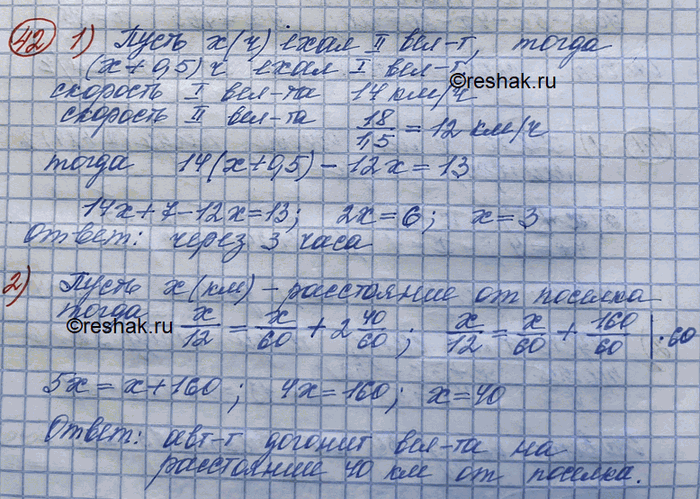 42 1) Пусть x(ч) ехал II вел-т, тогда
(x+0,5) ч ехал I вел-т
©reshak.ru
скорость I вел-та 14 км/ч
скорость II вел-та 18/1,5 = 12 км/ч
тогда 14(x+0,5) - 12x = 13
14x+7-12x=13; 2x=6; x=3
Ответ: через 3 часа
2) Пусть x(км) - расстояние от поселка
тогда x/12 = x/60 + 2 40/60; x/12 = x/60 + 160/60 |·60
©reshak.ru
5x = x+160; 4x=160; x=40
Ответ: авт-т догонит вел-та на
расстоянии 40 км от поселка.